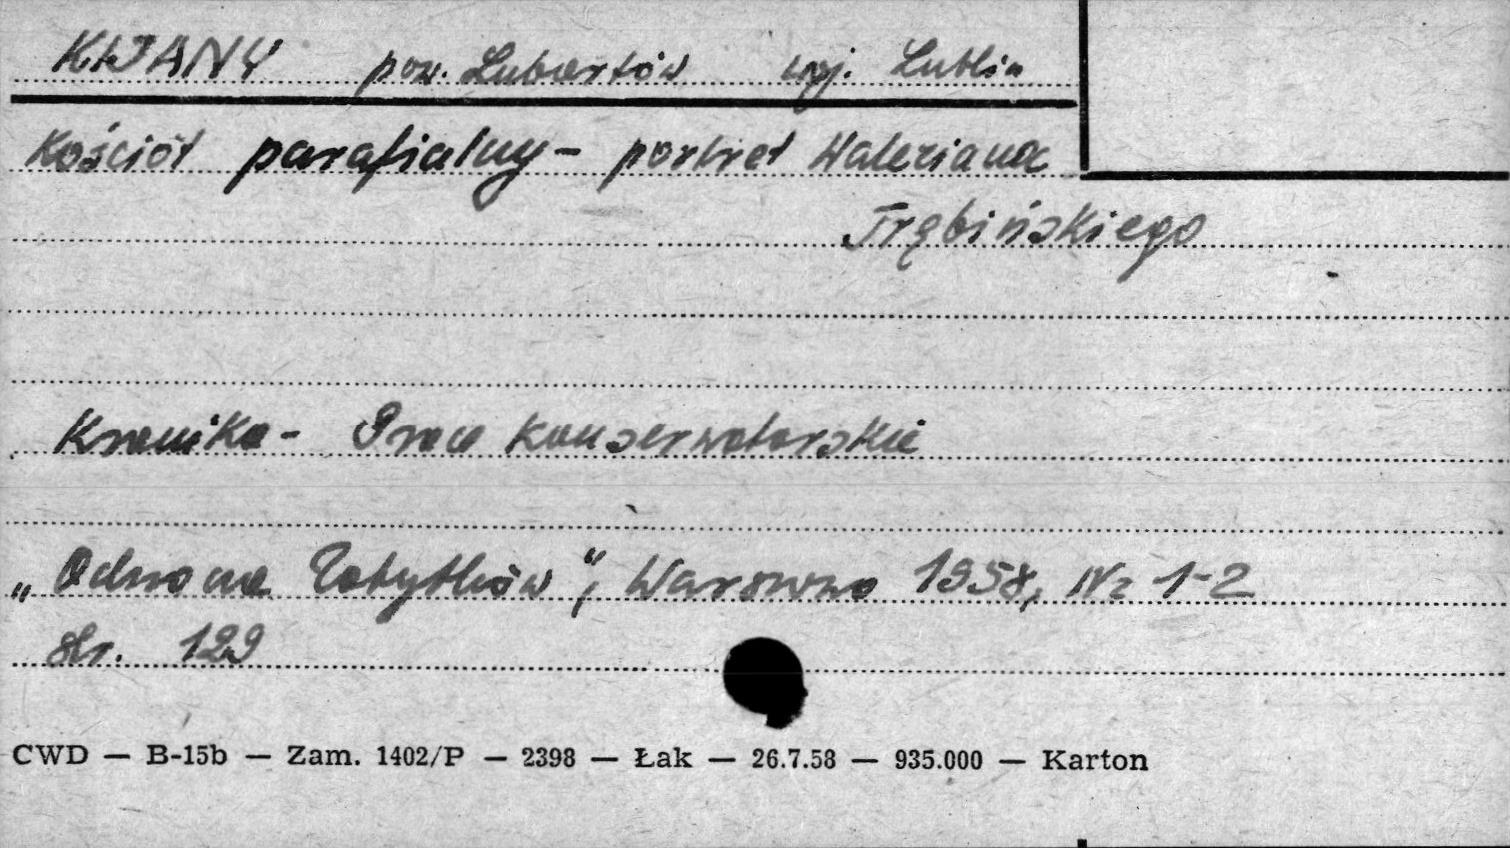 KIJANY pow. Lubartów woj. Lublin
Kościół parafialny - portret Waleriana
Trębińskiego
Kronika - Prace konserwatorskie
„Ochrona Zabytków", Warszawa 1958, Nr 1-2
str. 129
CWD — B-15b — Zam. 1402/P — 2398 — Łak — 26.7.58 — 935.000 — Karton